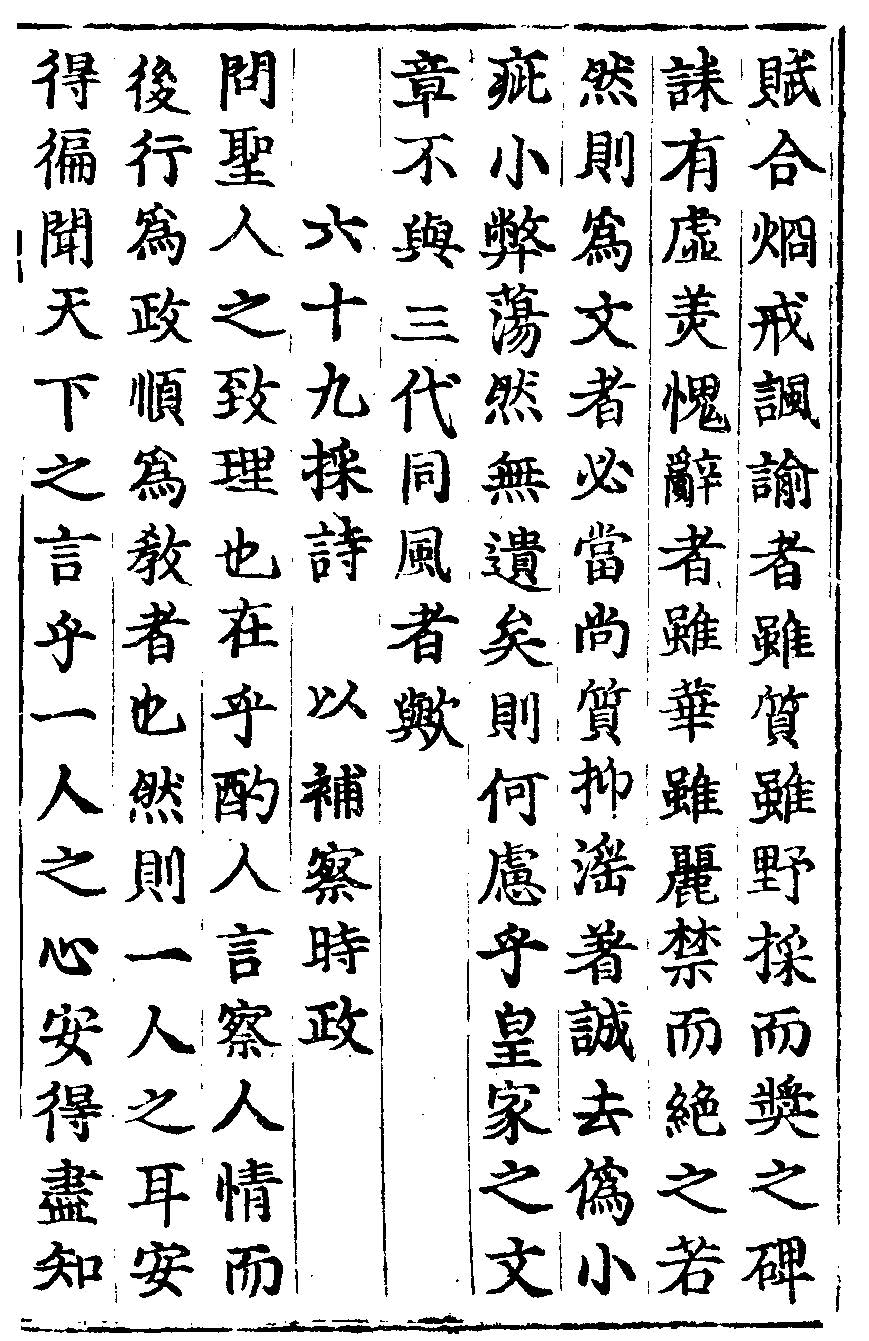 賦合烱戒諷諭者雖質雖野採而奬之碑
誄有虛羙愧辭者雖華雖麗禁而絕之若
然則爲文者必當尚質抑淫著誠去僞小
疵小弊蕩然無遺矣則何慮乎皇家之文
章不與三代同風者歟
六十九採詩 以補察時政
問聖人之致理也在乎酌人言察人情而
後行爲政順爲教者也然則一人之耳安
得徧聞天下之言乎一人之心安得盡知